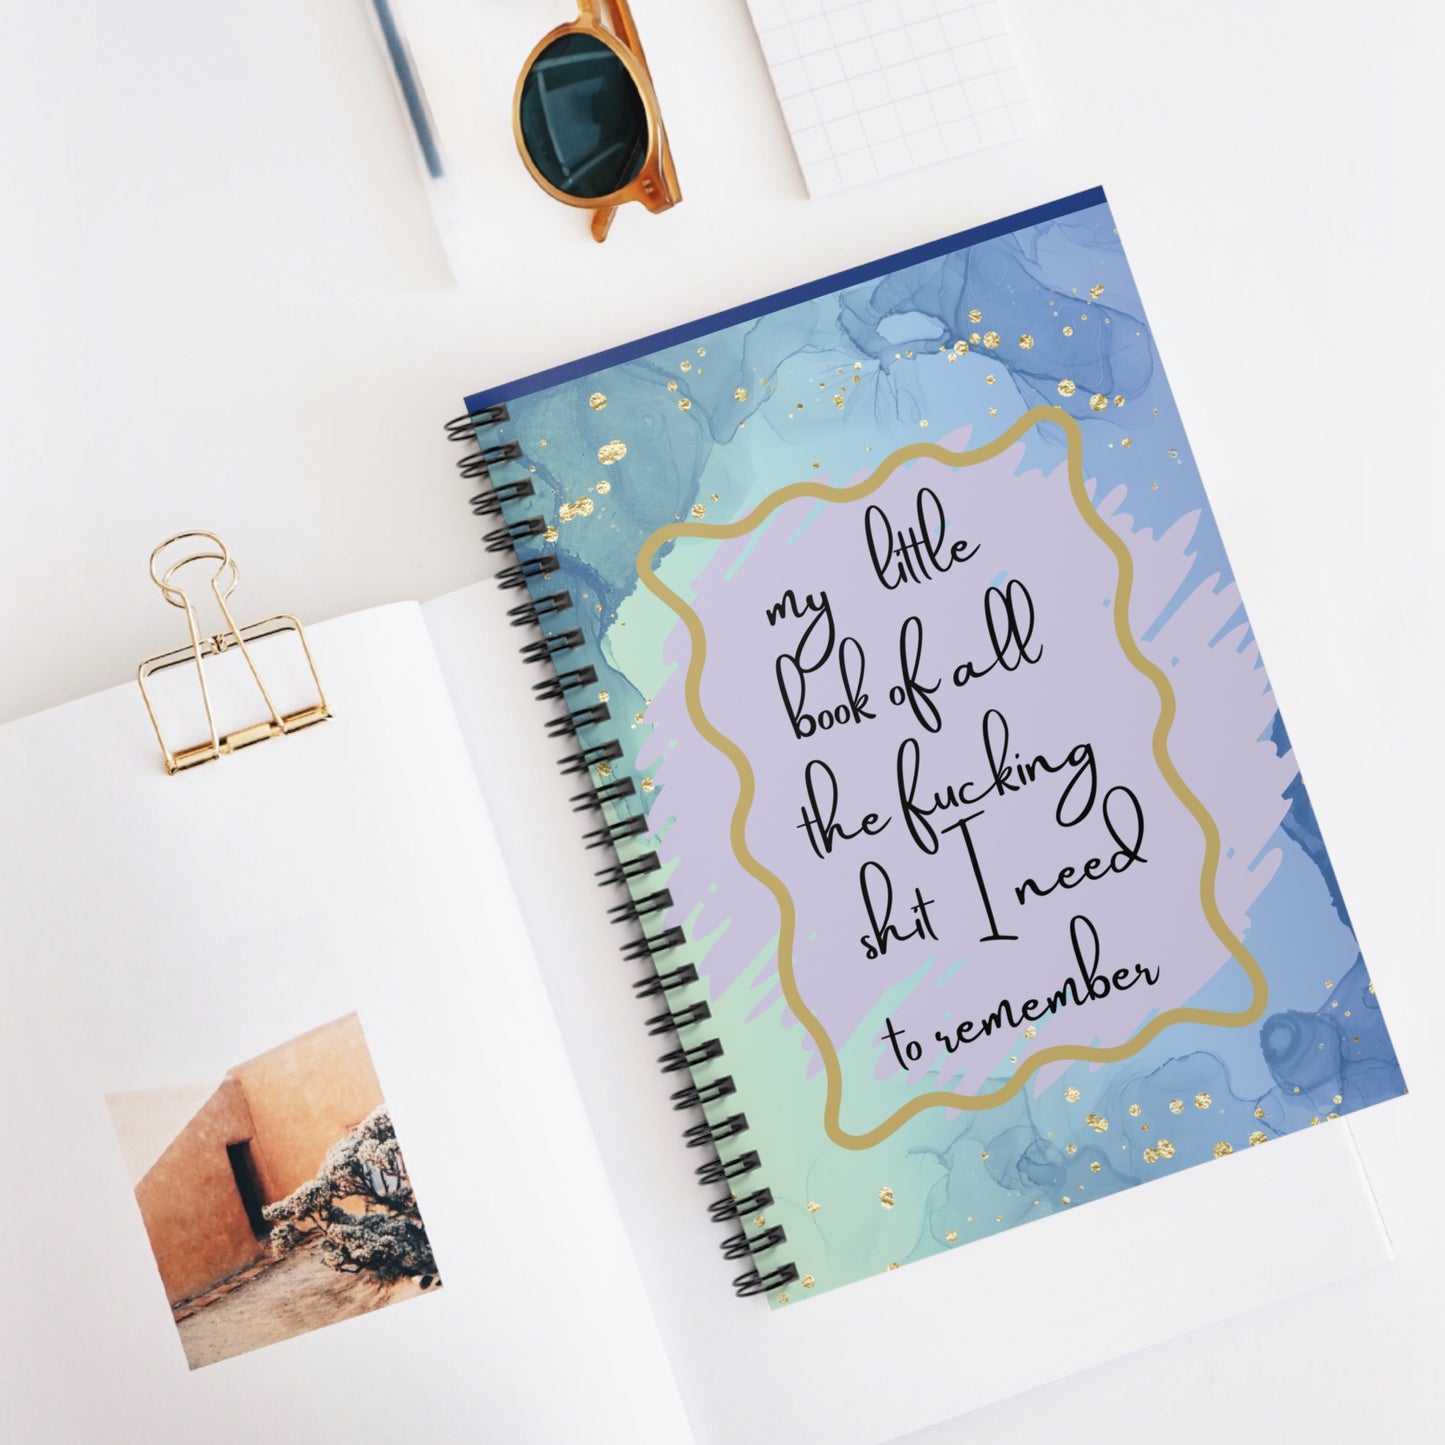 my little
book of all
the fucking
shit I need
to remember